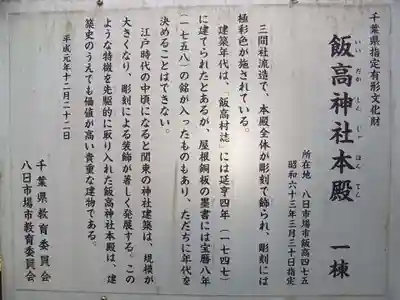 千葉県指定有形文化財
飯高神社本殿 一棟
いいだかじんじゃほんでん
所在地 八日市場市飯高四七五
昭和六十三年三月三十日指定
三間社流造で、本殿全体が彫刻で飾られ、彫刻には
極彩色が施されている。
建築年代は、「飯高村誌」には延享四年(一七四七)
に建てられたとあるが、屋根銅板の墨書には宝暦八年
(一七五八)の銘が入ったものもあり、ただちに年代を
決めることはできない。
江戸時代の中頃になると関東の神社建築は、規模が
大きくなり、彫刻による装飾が著しく発展する。この
ような特徴を先駆的に取り入れた飯高神社本殿は、建
築史のうえでも価値が高い貴重な建物である。
平成元年十二月二十二日
千葉県教育委員会
八日市場市教育委員会